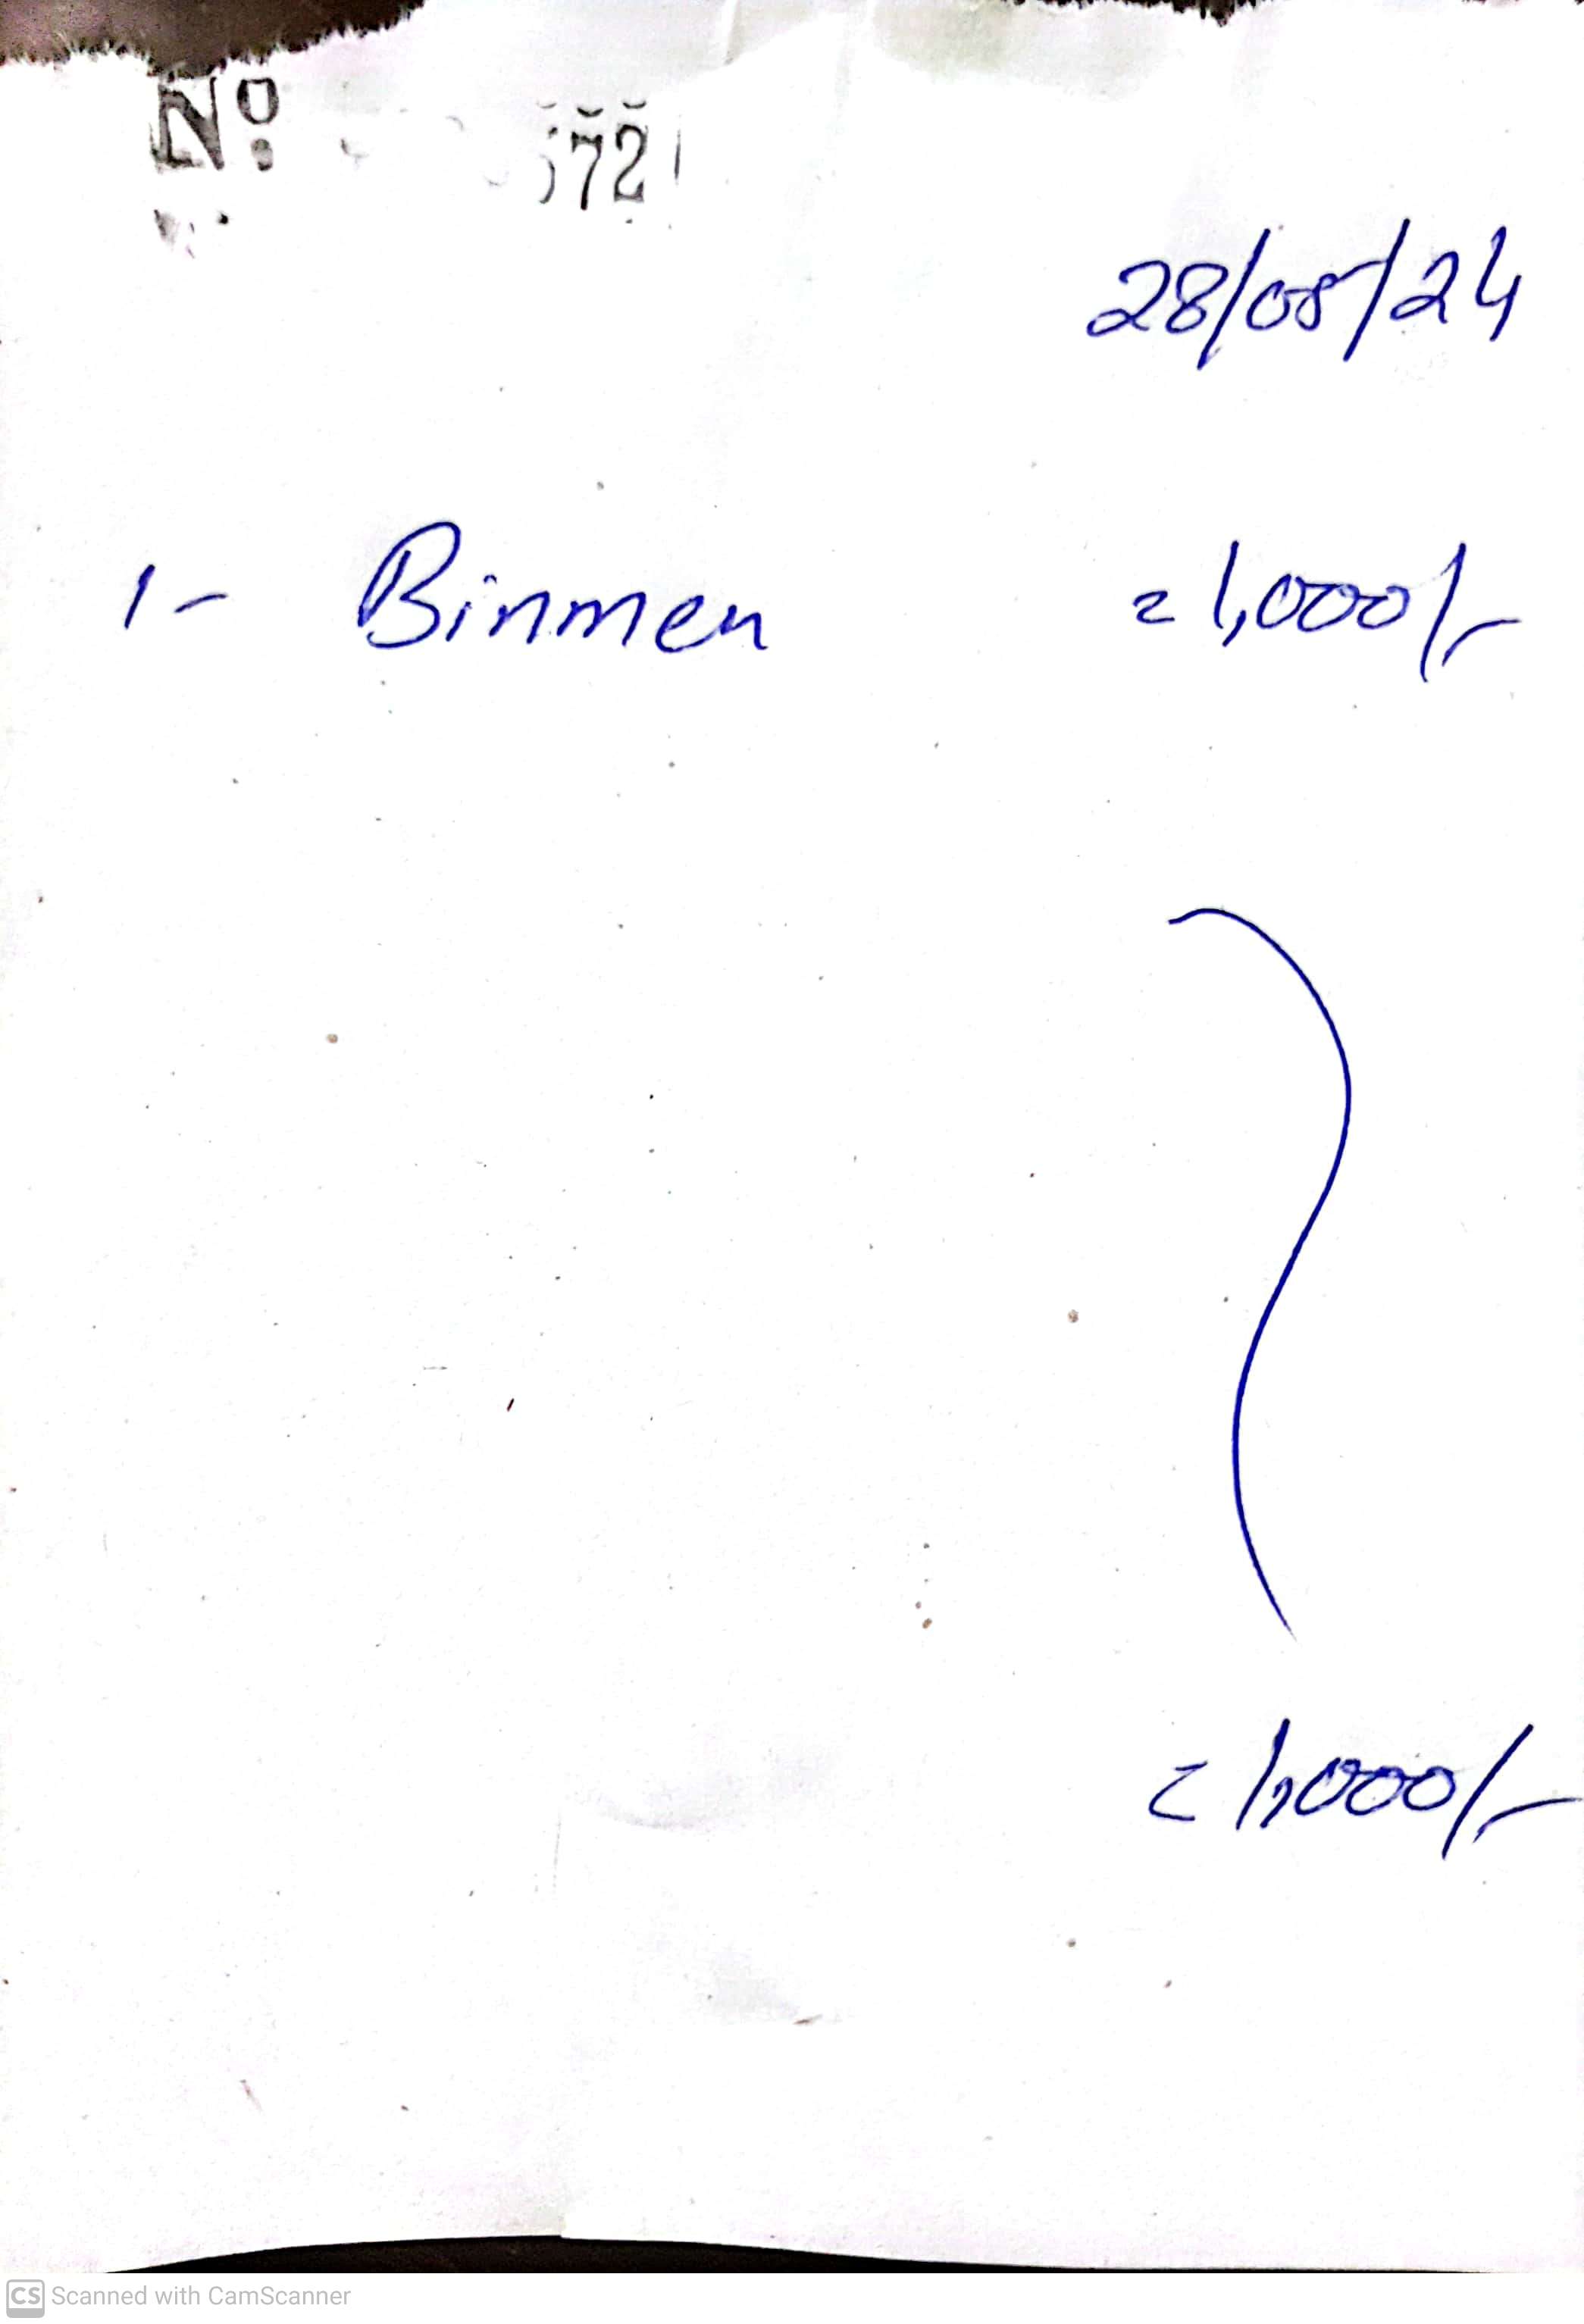 Nº 572
28/08/24
1- Binmen = 1,000/-
= 1,000/-
CS Scanned with CamScanner